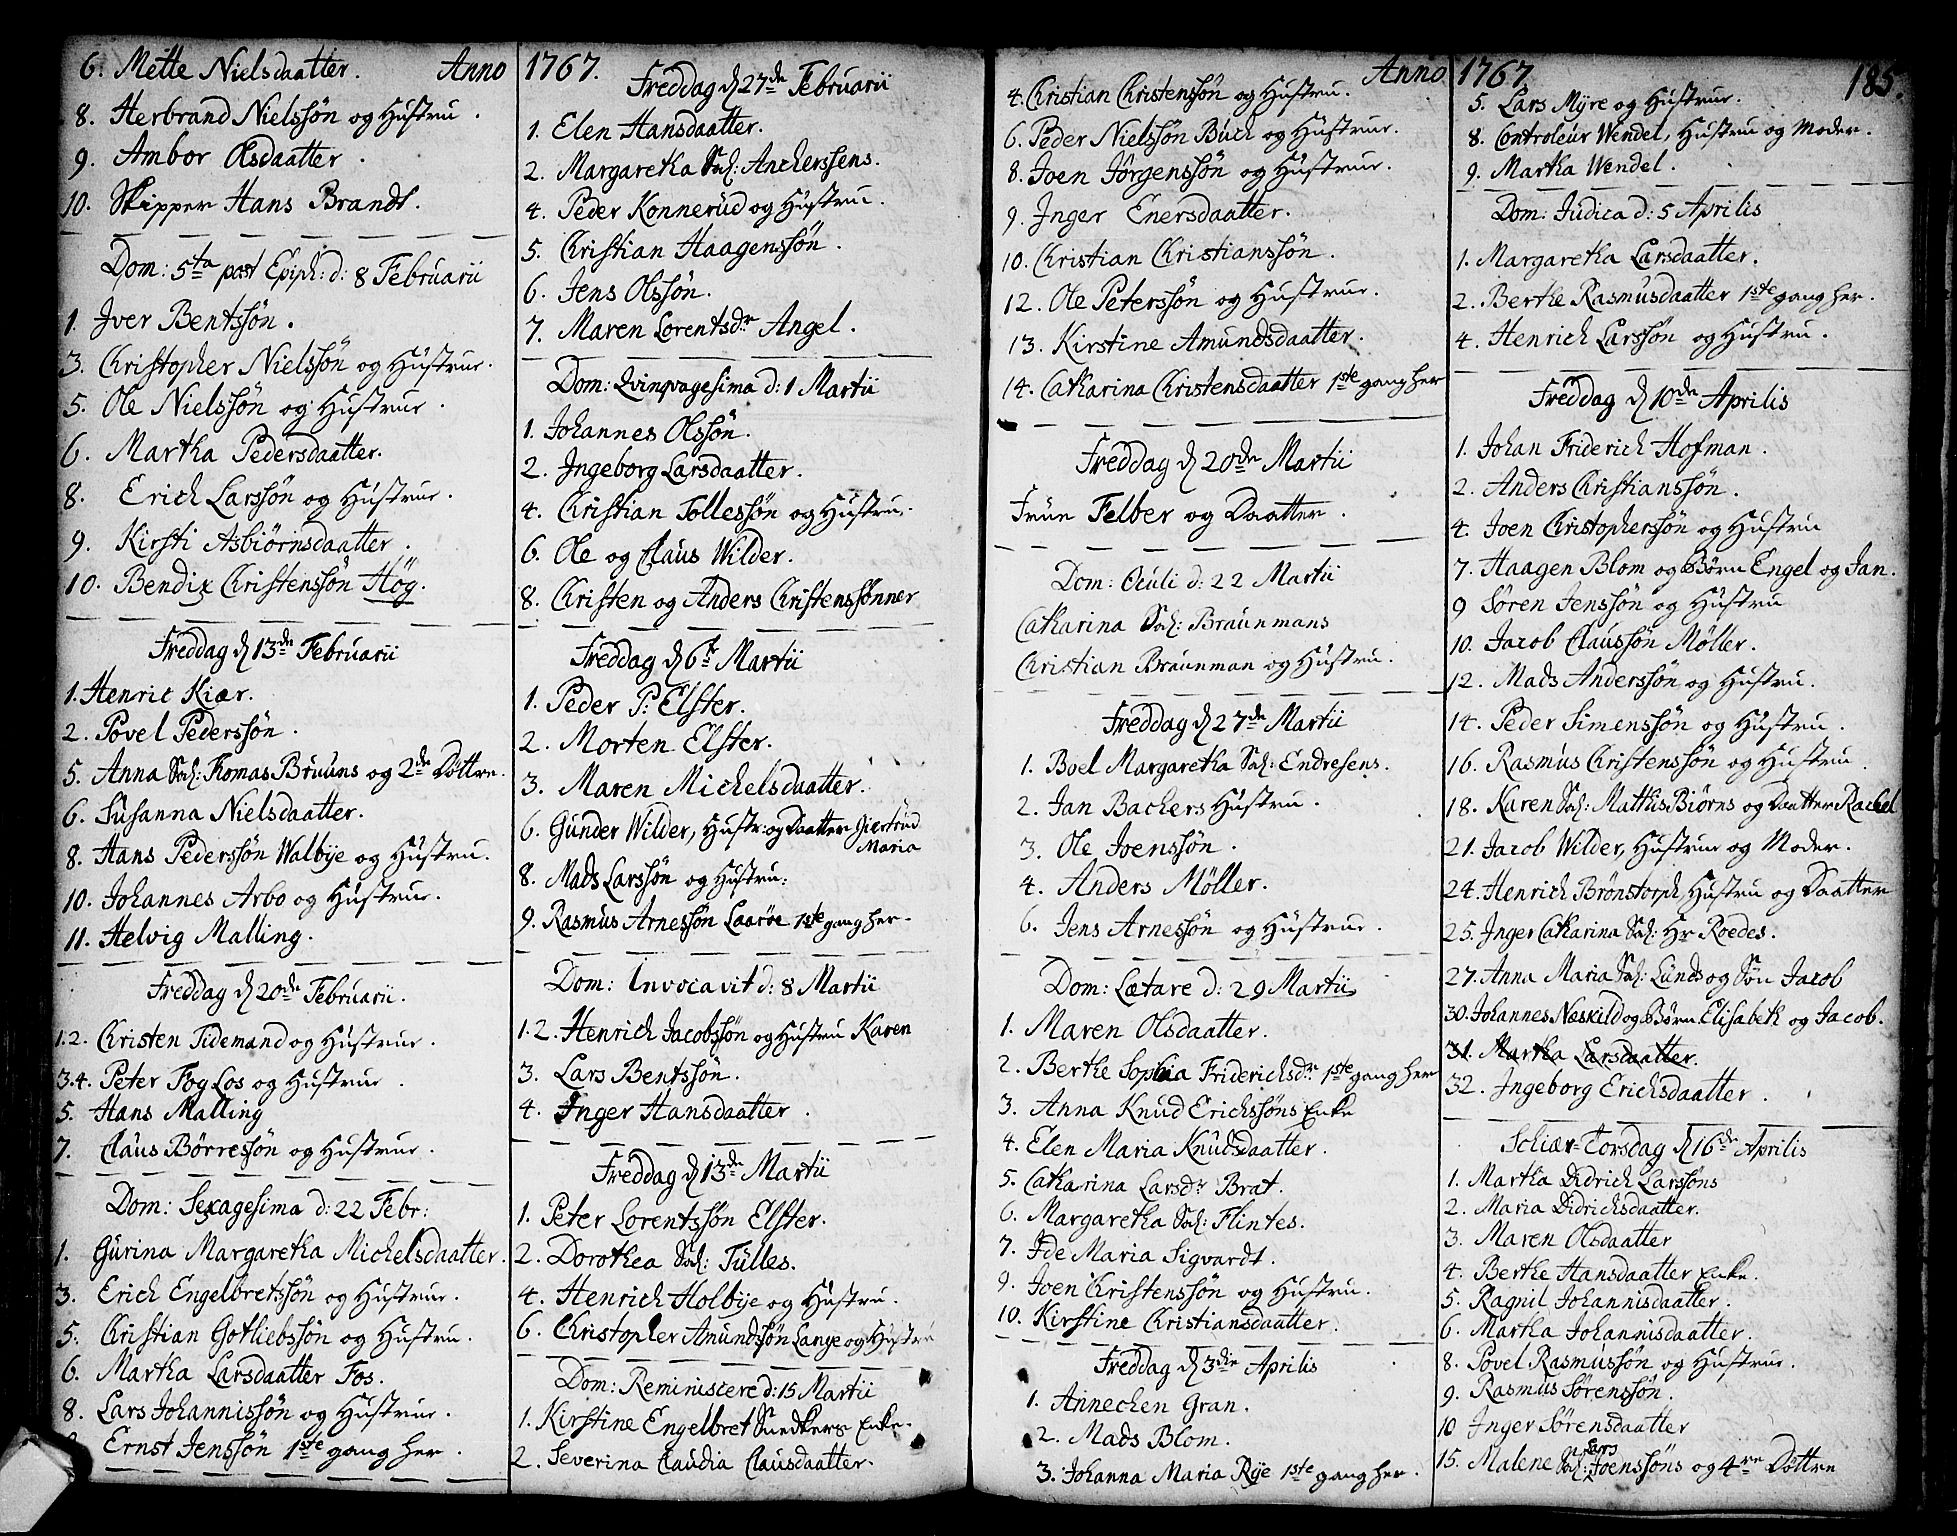 6. Mette Nielsdaatter. Anno
8. Herbrand Nielssøn og Hustru.
9. Ambor Olsdaatter.
10. Skipper Hans Brandt.
Dom: 5ta post Epiph: d: 8 Februarii
1. Iver Bentssøn.
3. Christopher Nielssøn og Hustrue.
5. Ole Nielssøn og Hustrue.
6. Martha Pedersdaatter.
8. Erich Larssøn og Hustrue.
9. Kirsti Asbiørnsdaatter.
10. Bendix Christenssøn Høg.
Freddag d 13de Februarii
1. Henric Kiær.
2. Povel Pederssøn.
5. Anna Sal: Thomas Bruuns og 2de Døttre.
6. Susanna Nielsdaatter.
8. Hans Pederssøn Walbye og Hustru.
10. Johannes Arbo og Hustrue.
11. Helvig Malling.
Freddag d 20de Februarii.
1.2. Christen Tidemand og Hustrue.
3.4. Peter Fog Los og Hustrue.
5. Hans Malling
7. Claus Børressøn og Hustrue.
Dom: Sexagesima d: 22 Febr:
1. Gurina Margaretha Michelsdaatter.
3. Erich Engelbretssøn og Hustrue.
5. Christian Gotliebssøn og Hustru.
6. Martha Larsdaatter Fos.
8. Lars Johannissøn og Hustrue.
Ernst Jenssøn 1ste gang her.
1767.
Freddag d 27de Februarii
1. Elen Hansdaatter.
2. Margaretha Sal: Ancherssens.
4. Peder Konnerud og Hustru.
5. Christian Haagenssøn.
6. Jens Olssøn.
7. Maren Lorentsdr Angel.
Dom: Qvinqvagesima d: 1 Martii
1. Johannes Olssøn.
2. Ingeborg Larsdaatter.
4. Christian Tollessøn og Hustru.
6. Ole og Claus Wilder.
8. Christen og Anders Christenssønner
Freddag d 6te Martii
1. Peder P: Elster.
2. Morten Elster.
3. Maren Michelsdaatter.
6. Gunder Wilder, Hustr: og Daatter Giertrud
Maria
8. Mads Larssøn og Hustru:
9. Rasmus Arnessøn Laarøe 1ste gang her.
Dom: Invocavit d: 8 Martii
1.2. Henrich Jacobssøn og Hustru Karen
3. Lars Bentssøn.
4. Inger Hansdaatter.
Freddag d 13de Martii
1. Peter Lorentssøn Elster.
2. Dorothea Sal: Tulles.
4. Henrich Holbye og Hustru.
6. Christopher Amundssøn Lange og Hustru
Dom: Reminiscere d: 15 Martii
1. Kirstine Engelbret Snedkers Enke.
2. Severina Claudia Clausdaatter.
Anno
4. Christian Christenssøn og Hustru.
6. Peder Nielssøn Buch og Hustrue.
8. Joen Jørgenssøn og Hustrue.
9. Inger Enersdaatter.
10. Christian Christianssøn.
12. Ole Peterssøn og Hustrue.
13. Kirstine Amundsdaatter.
14. Catharina Christensdaatter 1ste gang her
Freddag d 20de Martii
Frue Felber og Daatter.
Dom: Oculi d: 22 Martii
Catharina Sal: Braunmans
Christian Braunman og Hustru.
Freddag d 27de Martii
1. Boel Margaretha Sal: Endresens.
2. Jan Bachers Hustru.
3. Ole Joenssøn.
4. Anders Møller.
6. Jens Arnessøn og Hustrue.
Dom: Lætare d: 29 Martii
1. Maren Olsdaatter.
2. Berthe Sophia Friderichsdr 1ste gang her
3. Anna Knud Erichssøns Enke
4. Elen Maria Knudsdaatter.
5. Catharina Larsdr Brat.
6. Margaretha Sal: Flintes.
7. Ide Maria Sigvardt.
9. Joen Christenssøn og Hustru.
10. Kirstine Christiansdaatter.
Freddag d 3die Aprilis
1. Annechen Gran.
2. Mads Blom.
3. Johanna Maria Rye 1ste gang her.
1767. 185.
5. Lars Myre og Hustrue.
8. Controleur Wendel, Hustru og Moder.
9. Martha Wendel.
Dom: Judica d: 5 Aprilis
1. Margaretha Larsdaatter.
2. Berthe Rasmusdaatter 1ste gang her.
4. Henrich Larssøn og Hustru.
Freddag d 10de Aprilis
1. Johan Friderich Hofman.
2. Anders Christianssøn.
4. Joen Christopherssøn og Hustru
7. Haagen Blom og Børn Engel og Jan.
9 Søren Jenssøn og Hustru
10. Jacob Claussøn Møller.
12. Mads Anderssøn og Hustru.
14. Peder Simenssøn og Hustru.
16. Rasmus Christenssøn og Hustru.
18. Karen Sal: Mathis Biørns og Daatter Rachel
21. Jacob Wilder, Hustrue og Moder.
24. Henrich Brønstorph Hustru og Daatter
25. Inger Catharina Sal: Hr Roedes.
27. Anna Maria Sal: Lunds og Søn Jacob
30. Johannes Næskild og Børn Elisabeth og Jacob.
31. Martha Larsdaatter.
32. Ingeborg Erichsdaatter.
Schiær-Torsdag d 16de Aprilis
1. Martha Didrich Larssøns
2. Maria Didrichsdaatter.
3. Maren Olsdaatter
4. Berthe Hansdaatter Enke.
5. Ragnil Johannisdaatter.
6. Martha Johannisdaatter.
8. Povel Rasmussøn og Hustrue.
9. Rasmus Sørenssøn.
10 Inger Sørensdaatter
15. Malene Sal: Lars Joenssøns og 4re Døttre